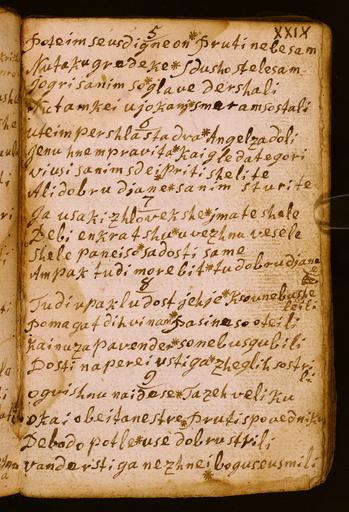 XXIX
5
poteim se usdigneon * pruti nebesam
Nutaku gredeke * sdushostelesam
jogri sanim so * glave dershali
Kutamkei ujokam * smeram sostali
6
uteim pershla sta dva * Angelza doli
jenu hnem pravita * kai gledate gori
viusi sanim sdei * priti shelite
Ali dobru djane * sanim sturite
7
ga usaki zhlovek she * jmate shale
Debi enkrat shu * uvezhnu vesele
shele paneiso * sadosti same
Ampak tudi more bit * tu dobru djane
8
Tudi upak ludost jehje * ksounebushe
teili
pomagat dih vinam * pasine so oteili
kainuza pavender * sonebusgubili
Dosti naperei ustiga * zheglih sostri
li
9
ogvishnu naidese * Tazeh veliku
okai obeitanestre * pruti spovedniku
Debodo potle * use dobru strili
vander stiga nezhnei * bogu seusmili